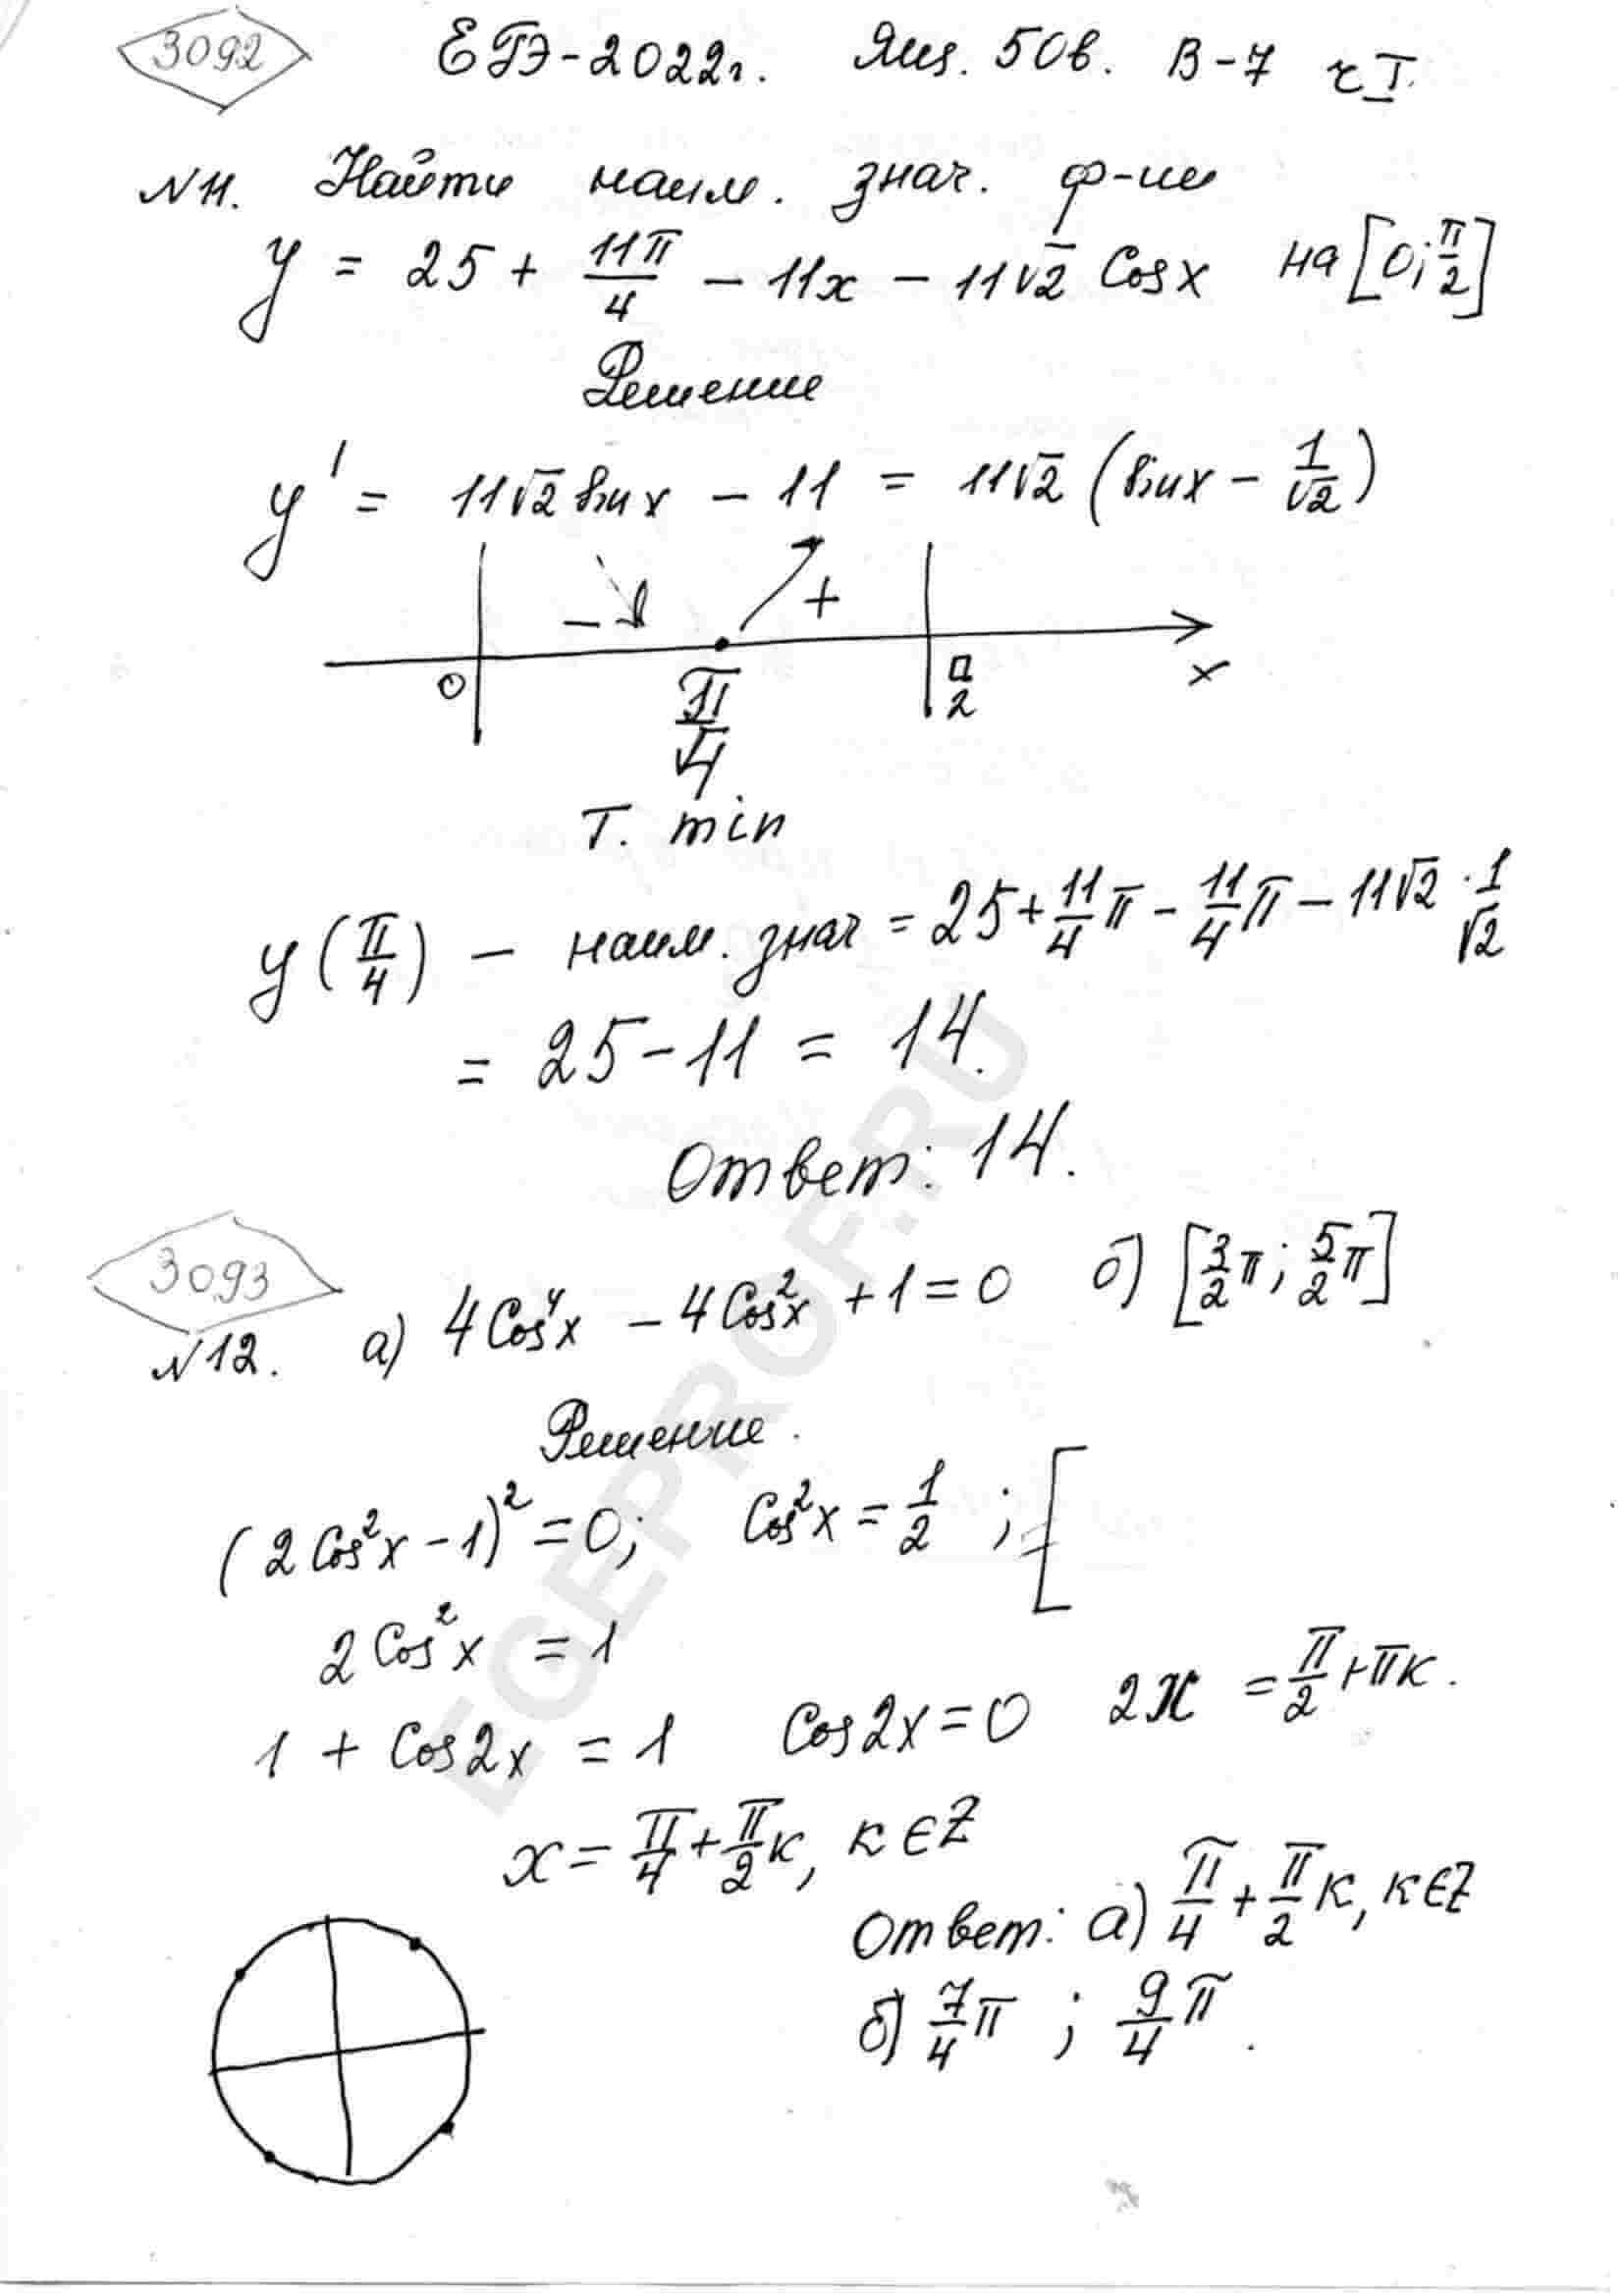 3092 ЕГЭ-2022г. Ящ. 50в. В-7 ч I.
N 11. Найти наим. знач. ф-ии
y = 25 + 11π/4 - 11x - 11√2 Cos x на [0; π/2]
Решение
y' = 11√2 sin x - 11 = 11√2 (sin x - 1/√2)
- +
0 π/4 π/2 x
т. min
y(π/4) - наим. знач = 25 + 11/4 π - 11/4 π - 11√2 · 1/√2
= 25 - 11 = 14.
Ответ: 14.
3093
N 12. а) 4Cos⁴x - 4Cos²x + 1 = 0 б) [3/2 π; 5/2 π]
Решение.
(2Cos²x - 1)² = 0; Cos²x = 1/2 ; [
2Cos²x = 1
1 + Cos2x = 1 Cos2x = 0 2x = π/2 + πк.
x = π/4 + π/2 к, к ∈ Z
Ответ: а) π/4 + π/2 к, к ∈ Z
б) 7/4 π ; 9/4 π.
EGEPROF.RU